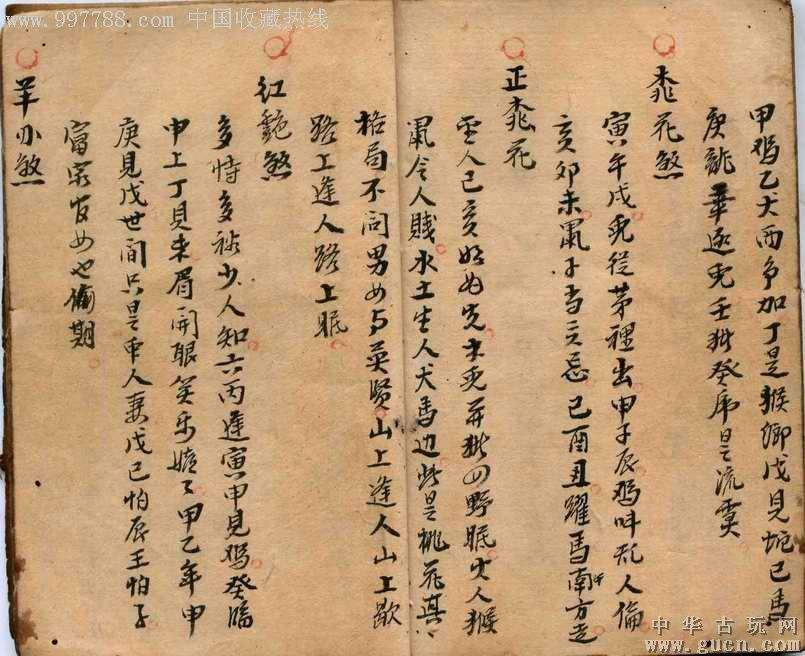 www.997788.com 中国收藏热线
甲鸡乙犬丙加丁是猴鄉戊見蛇己馬
庚龍逐兎壬猪癸是流霞
桃花煞
寅午戌兎從茅裡出申子辰鸡叫乱人倫
亥卯未鼠子當忌巳酉丑躍馬南方走
正桃花
人巳亥木兎猪四野眠火人猴
鼠令人賤水土生人犬馬边此是桃花真
格局不同男女与英賢山上逢人山上歇
路上逢人路上眠
红艳煞
多情多少人知六丙逢寅甲見鸡癸臨
申上丁見未眉開眼笑乐嬉甲乙年申
庚見戌世間只是人妻戊己怕辰壬怕子
富家女也偷期
羊刃煞
中华古玩网
www.gucn.com